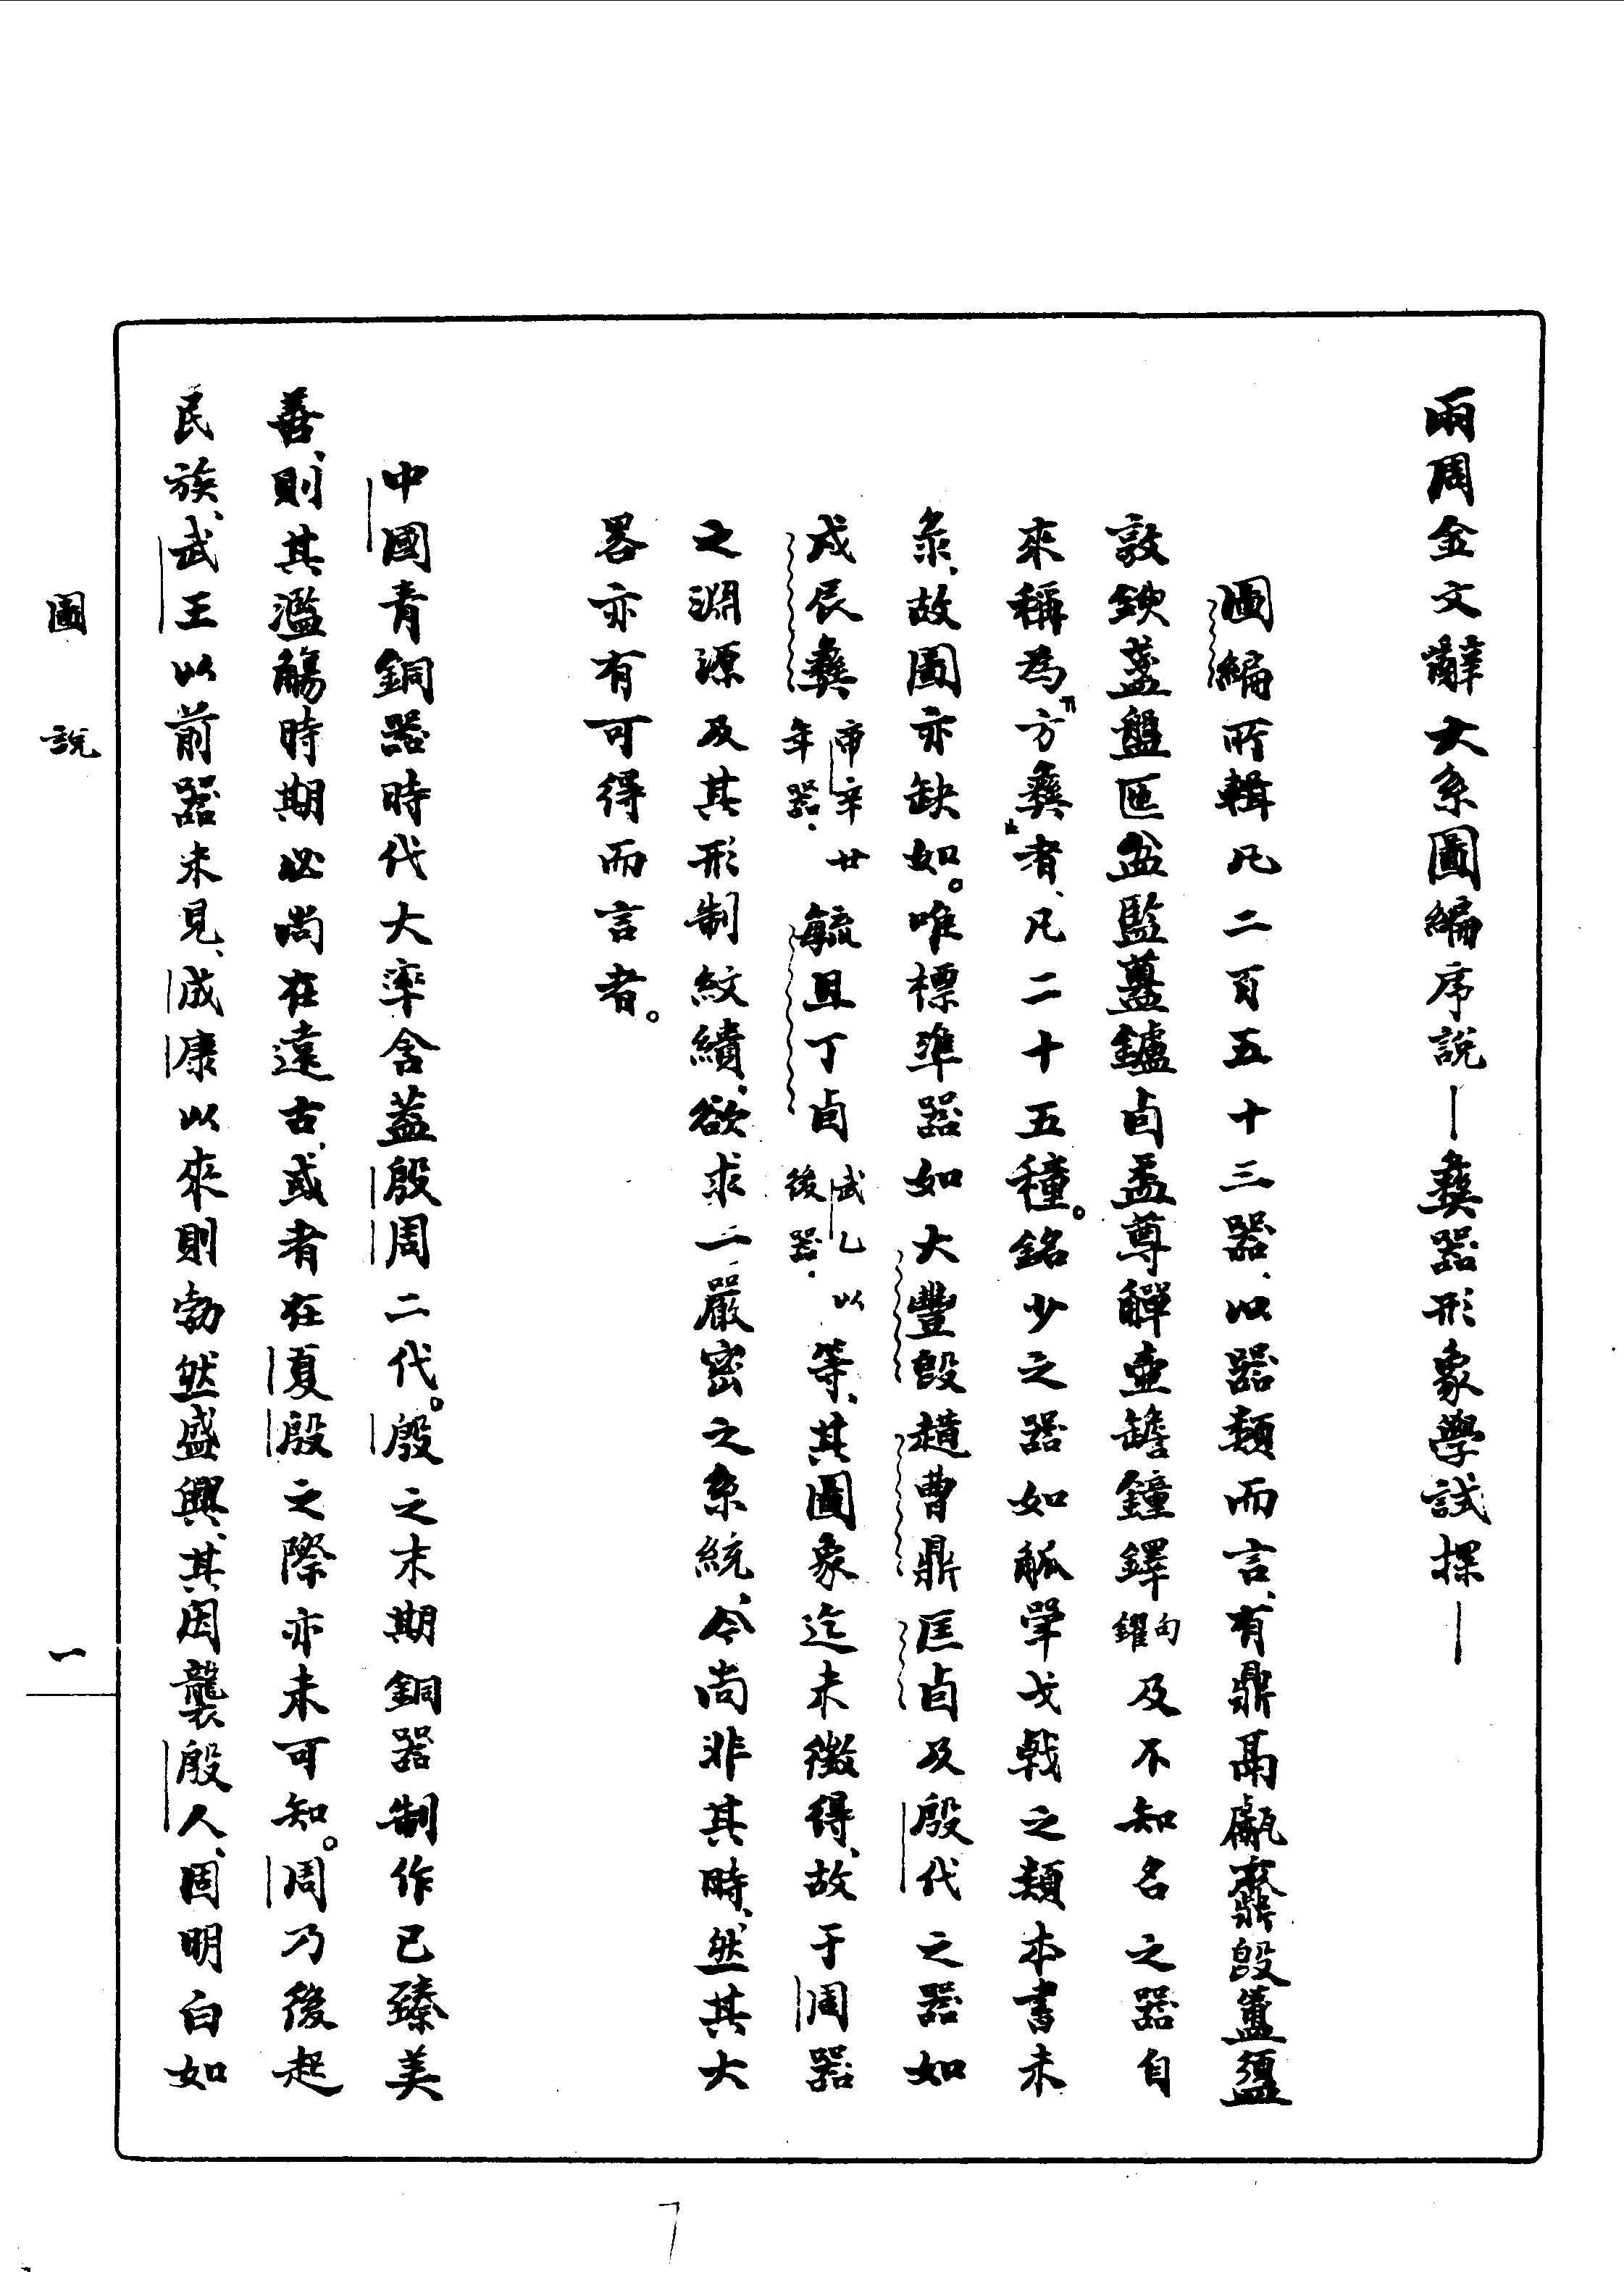 兩周金文辭大系圖編序說—彝器形象學試探—
圖編所輯凡二百五十三器、以器類而言、有鼎鬲甗鼒𣪘簠盨
敦鍥盞盤匜盆監𥂴鑪卣盉尊觶壺罎鐘鐸句鑃及不知名之器自
來稱為『方彝』者、凡二十五種。銘少之器如觚斝戈戟之類本書未
彔、故圖亦缺如。唯標準器如大豐𣪘趞曹鼎匡卣及殷代之器如
戊辰彝帝辛廿年器、毓且丁卣武乙以後器、等、其圖象迄未徵得、故于周器
之淵源及其形制紋繢、欲求一嚴密之系統、今尚非其時、然其大
畧亦有可得而言者。
中國青銅器時代大率含蓋殷周二代。殷之末期銅器制作已臻美
善、則其濫觴時期必尚在遠古、或者在夏殷之際亦未可知。周乃後起
民族、武王以前器未見、成康以來則勃然盛興、其因襲殷人、固明白如
圖說
一
7